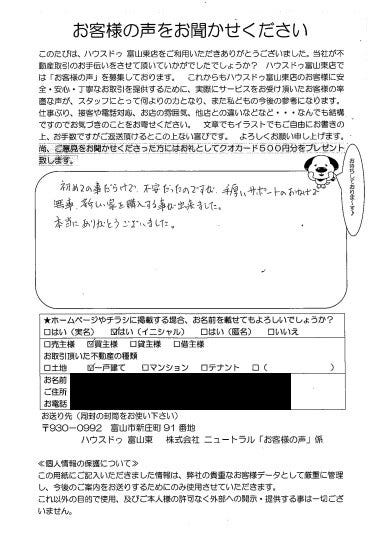 お客様の声をお聞かせください
このたびは、ハウスドゥ富山東店をご利用いただきありがとうございました。当社が不
動産取引のお手伝いをさせて頂いていかがでしたでしょうか？ ハウスドゥ富山東店で
は「お客様の声」を募集しております。 これからもハウスドゥ富山東店のお客様に安
全・安心・丁寧なお取引を提供するために、実際にサービスをお受け頂いたお客様の率
直な声が、スタッフにとって何よりの力となり、また私どもの今後の参考になります。
仕事ぶり、接客や電話対応、お店の雰囲気、他店との違いなどなど・・・なんでも結構
ですのでお気づきのことをお寄せください。 文章でもイラストでもご自由にお書きの
上、お手数ですがご返送頂けるとこの上ない喜びです。 よろしくお願い申し上げます。
尚、ご意見をお聞かせくださった方にはお礼としてクオカード５００円分をプレゼント
致します。
お待ちしております～♪
初めての事だらけで、不安だったのですが、手厚いサポートのおかげで
無事、新しい家を購入する事が出来ました。
本当にありがとうございました。
★ホームページやチラシに掲載する場合、お名前を載せてもよろしいでしょうか？
□はい（実名） ☑はい（イニシャル） □はい（匿名） □いいえ
□売主様 ☑買主様 □貸主様 □借主様
お取引頂いた不動産の種類
□土地 ☑一戸建て □マンション □テナント □（ ）
お名前
ご住所
お電話
お送り先（同封の封筒をお使い下さい）
〒930-0992 富山市新庄町 91 番地
ハウスドゥ 富山東 株式会社 ニュートラル「お客様の声」係
≪個人情報の保護について≫
この用紙にご記入いただきました情報は、弊社の貴重なお客様データとして厳重に管理
し、今後のご案内をお送りするためにのみ使用させていただきます。
これ以外の目的で使用、及びご本人様の許可なく外部への開示・提供する事は一切ござ
いません。